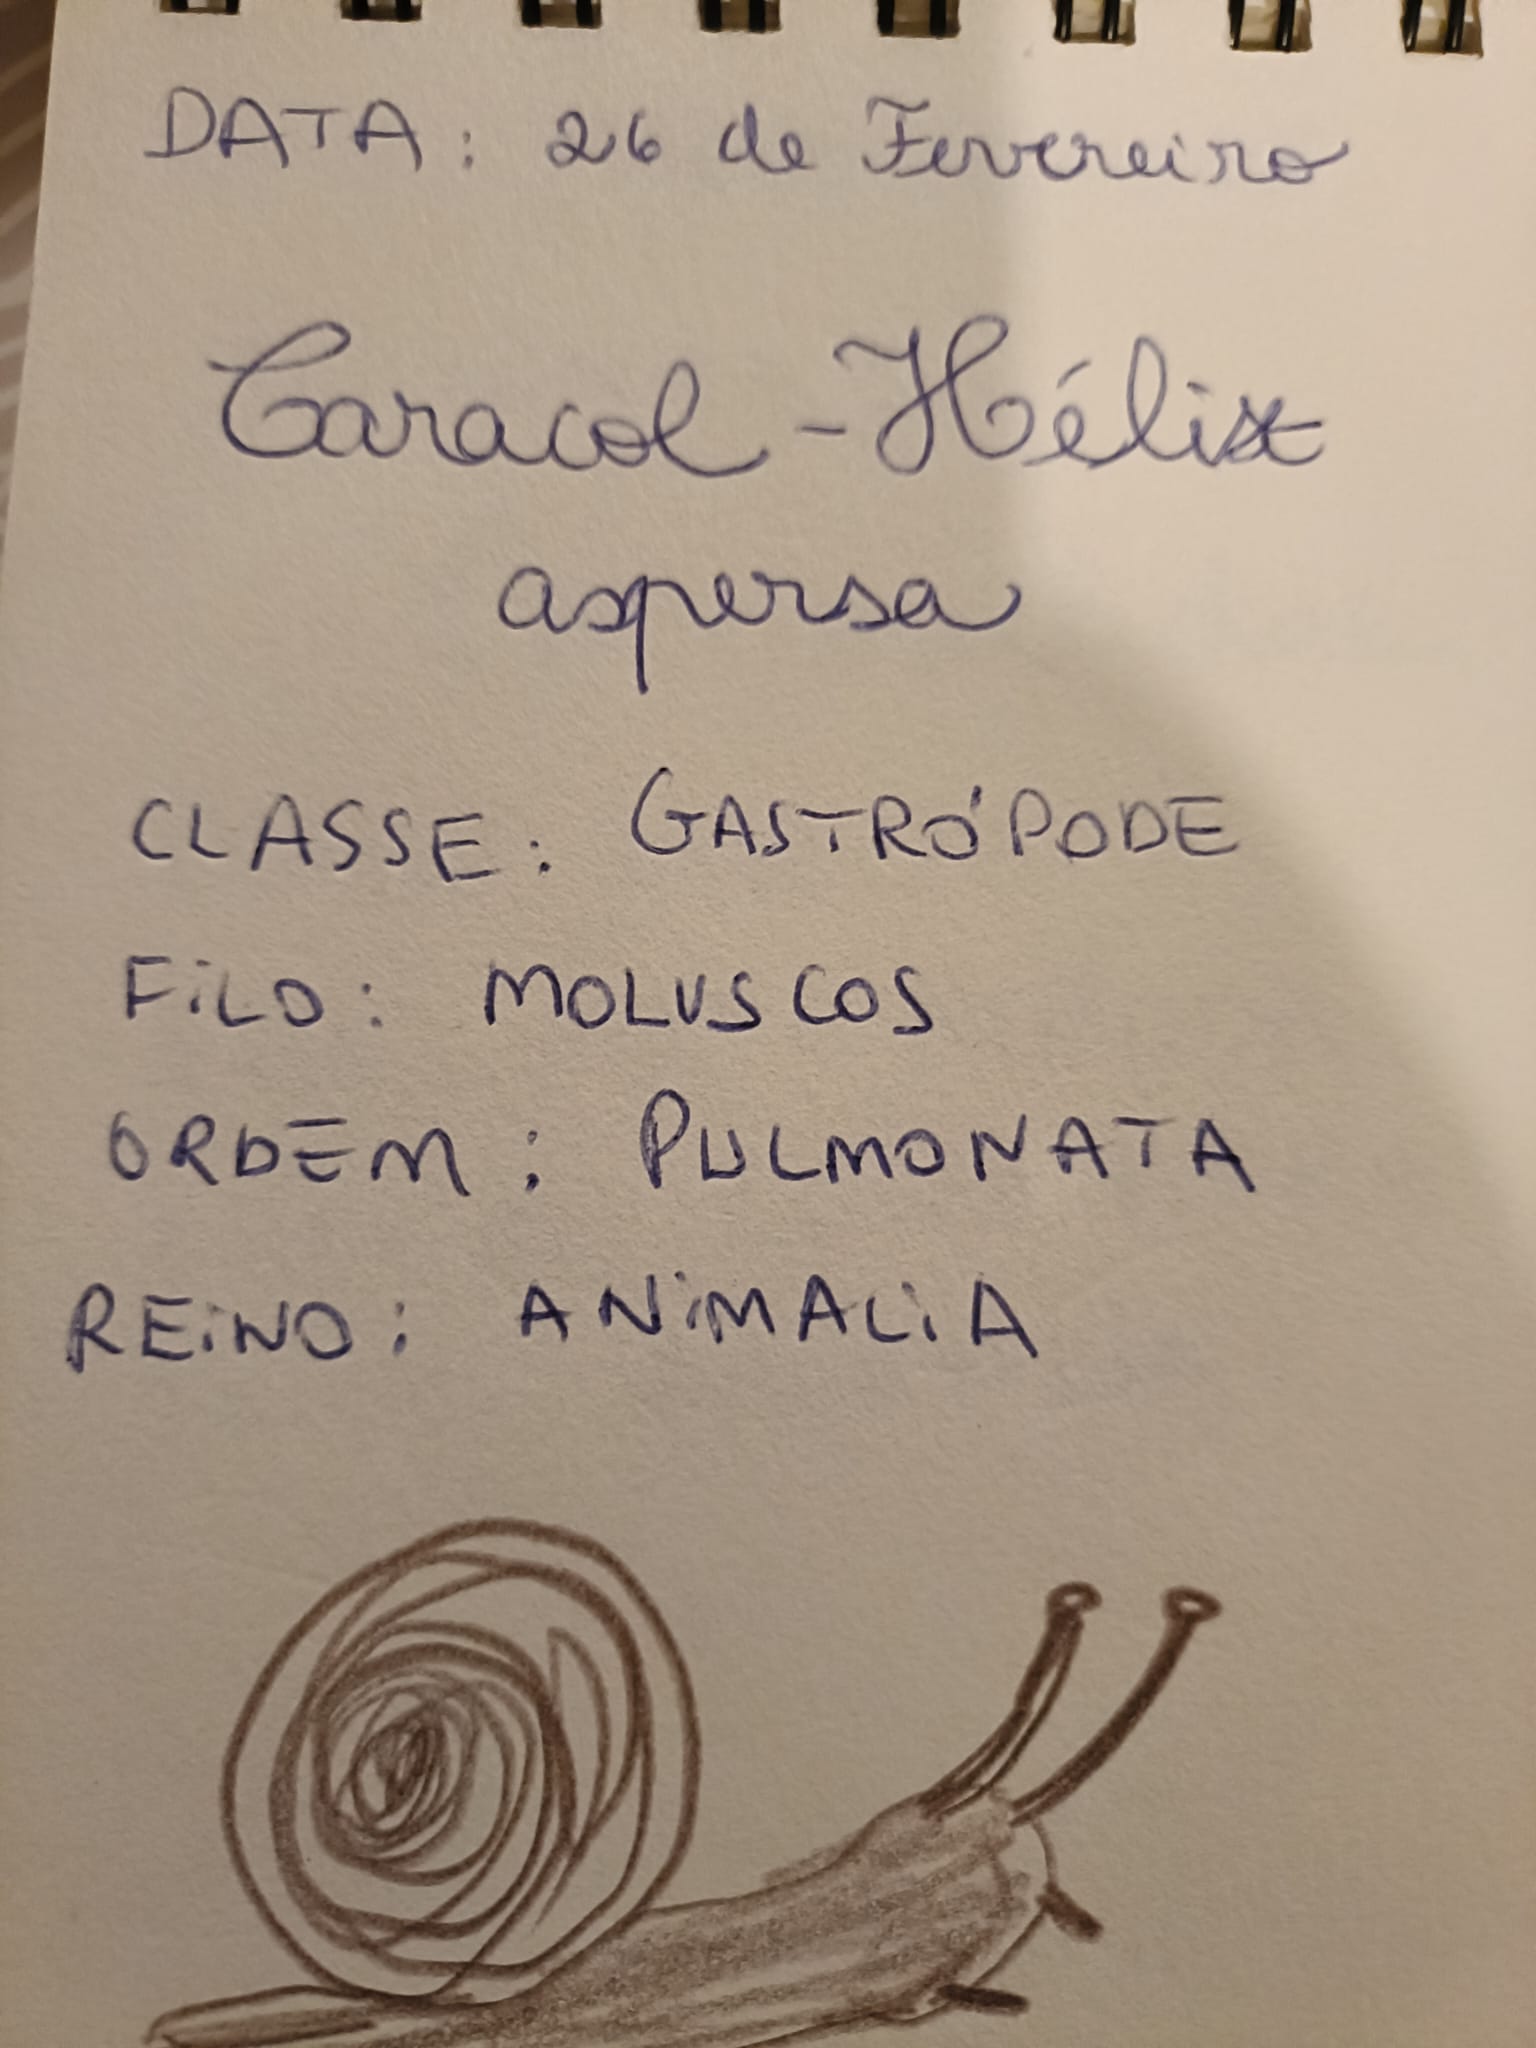 DATA: 26 de Fevereiro
Caracol - Hélix
aspersa
CLASSE: GASTRÓPODE
FiLO: MOLUSCOS
ORDEM: PULMONATA
REiNO: ANiMALiA